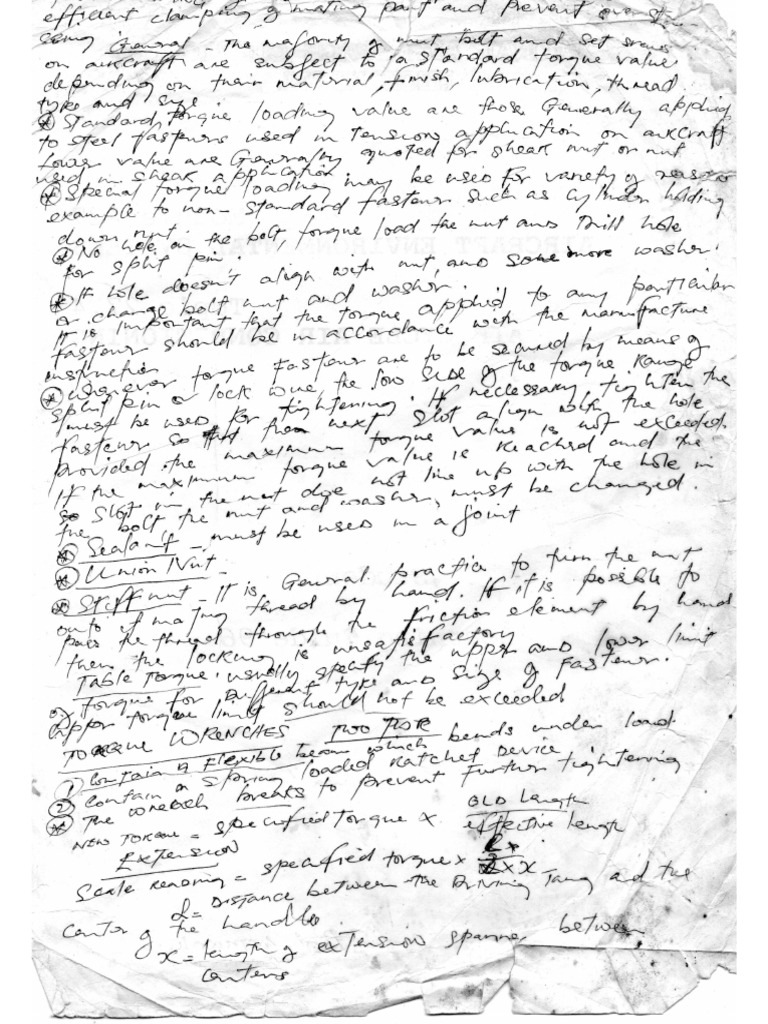 efficient clamping of mating part and prevent overst-
ssing General - The majority of nut bolt and set srews
on aircraft are subject to a standard torque value
depending on their material, finish, lubrication, thread
type and size
* Standard torque loading value are those Generally applying
to steel fasteners used in tension application on aircraft
lower value are Generally quoted for sheak nut or nut
used in sheak application
* Special torque loading may be used for variety of reason
example to non-standard fastener such as cylinder holding
down nut.
* No hole on the bolt, torque load the nut and drill hole
for split pin
* If hole doesn't align with nut, and some more washer.
or change bolt nut and washer.
It is important that the torque applied to any particular
fastener should be in accordance with the manufacture
instruction
* Whenever torque fastener are to be secured by means of
split pin or lock wire the low side of the torque range
must be used for tightening. If neccessary tighten the
fastener so that the next slot align with the hole
provided the maximum torque value is not exceeded.
If the maximum torque value is reached and the
so slot in the nut doe not line up with the hole in
the bolt the nut and washer, must be changed.
* Sealant - must be used in a joint
* Union Nut -
* Stiff nut - It is General practice to turn the nut
onto it mating thread by hand. If it is possible to
pass the thread through the friction element by hand
then the locking is unsatisfactory
Table Torque. usually specify the upper and lower limit
of torque for different type and size of fastener.
upper torque limit should not be exceeded
TORQUE WRENCHES TWO TYPE
1) Contain a flexible beam which bends under load
2) Contain a spring loaded ratchet device
* The wrench breaks to prevent further tightening
NEW TORQUE = specified torque x OLD Length
effective length
EXTENSION
Scale reading = specified torque x L
L + x
L = Distance between the Driving Tang and the
center of the handle
x = length of extension spanner between
centers